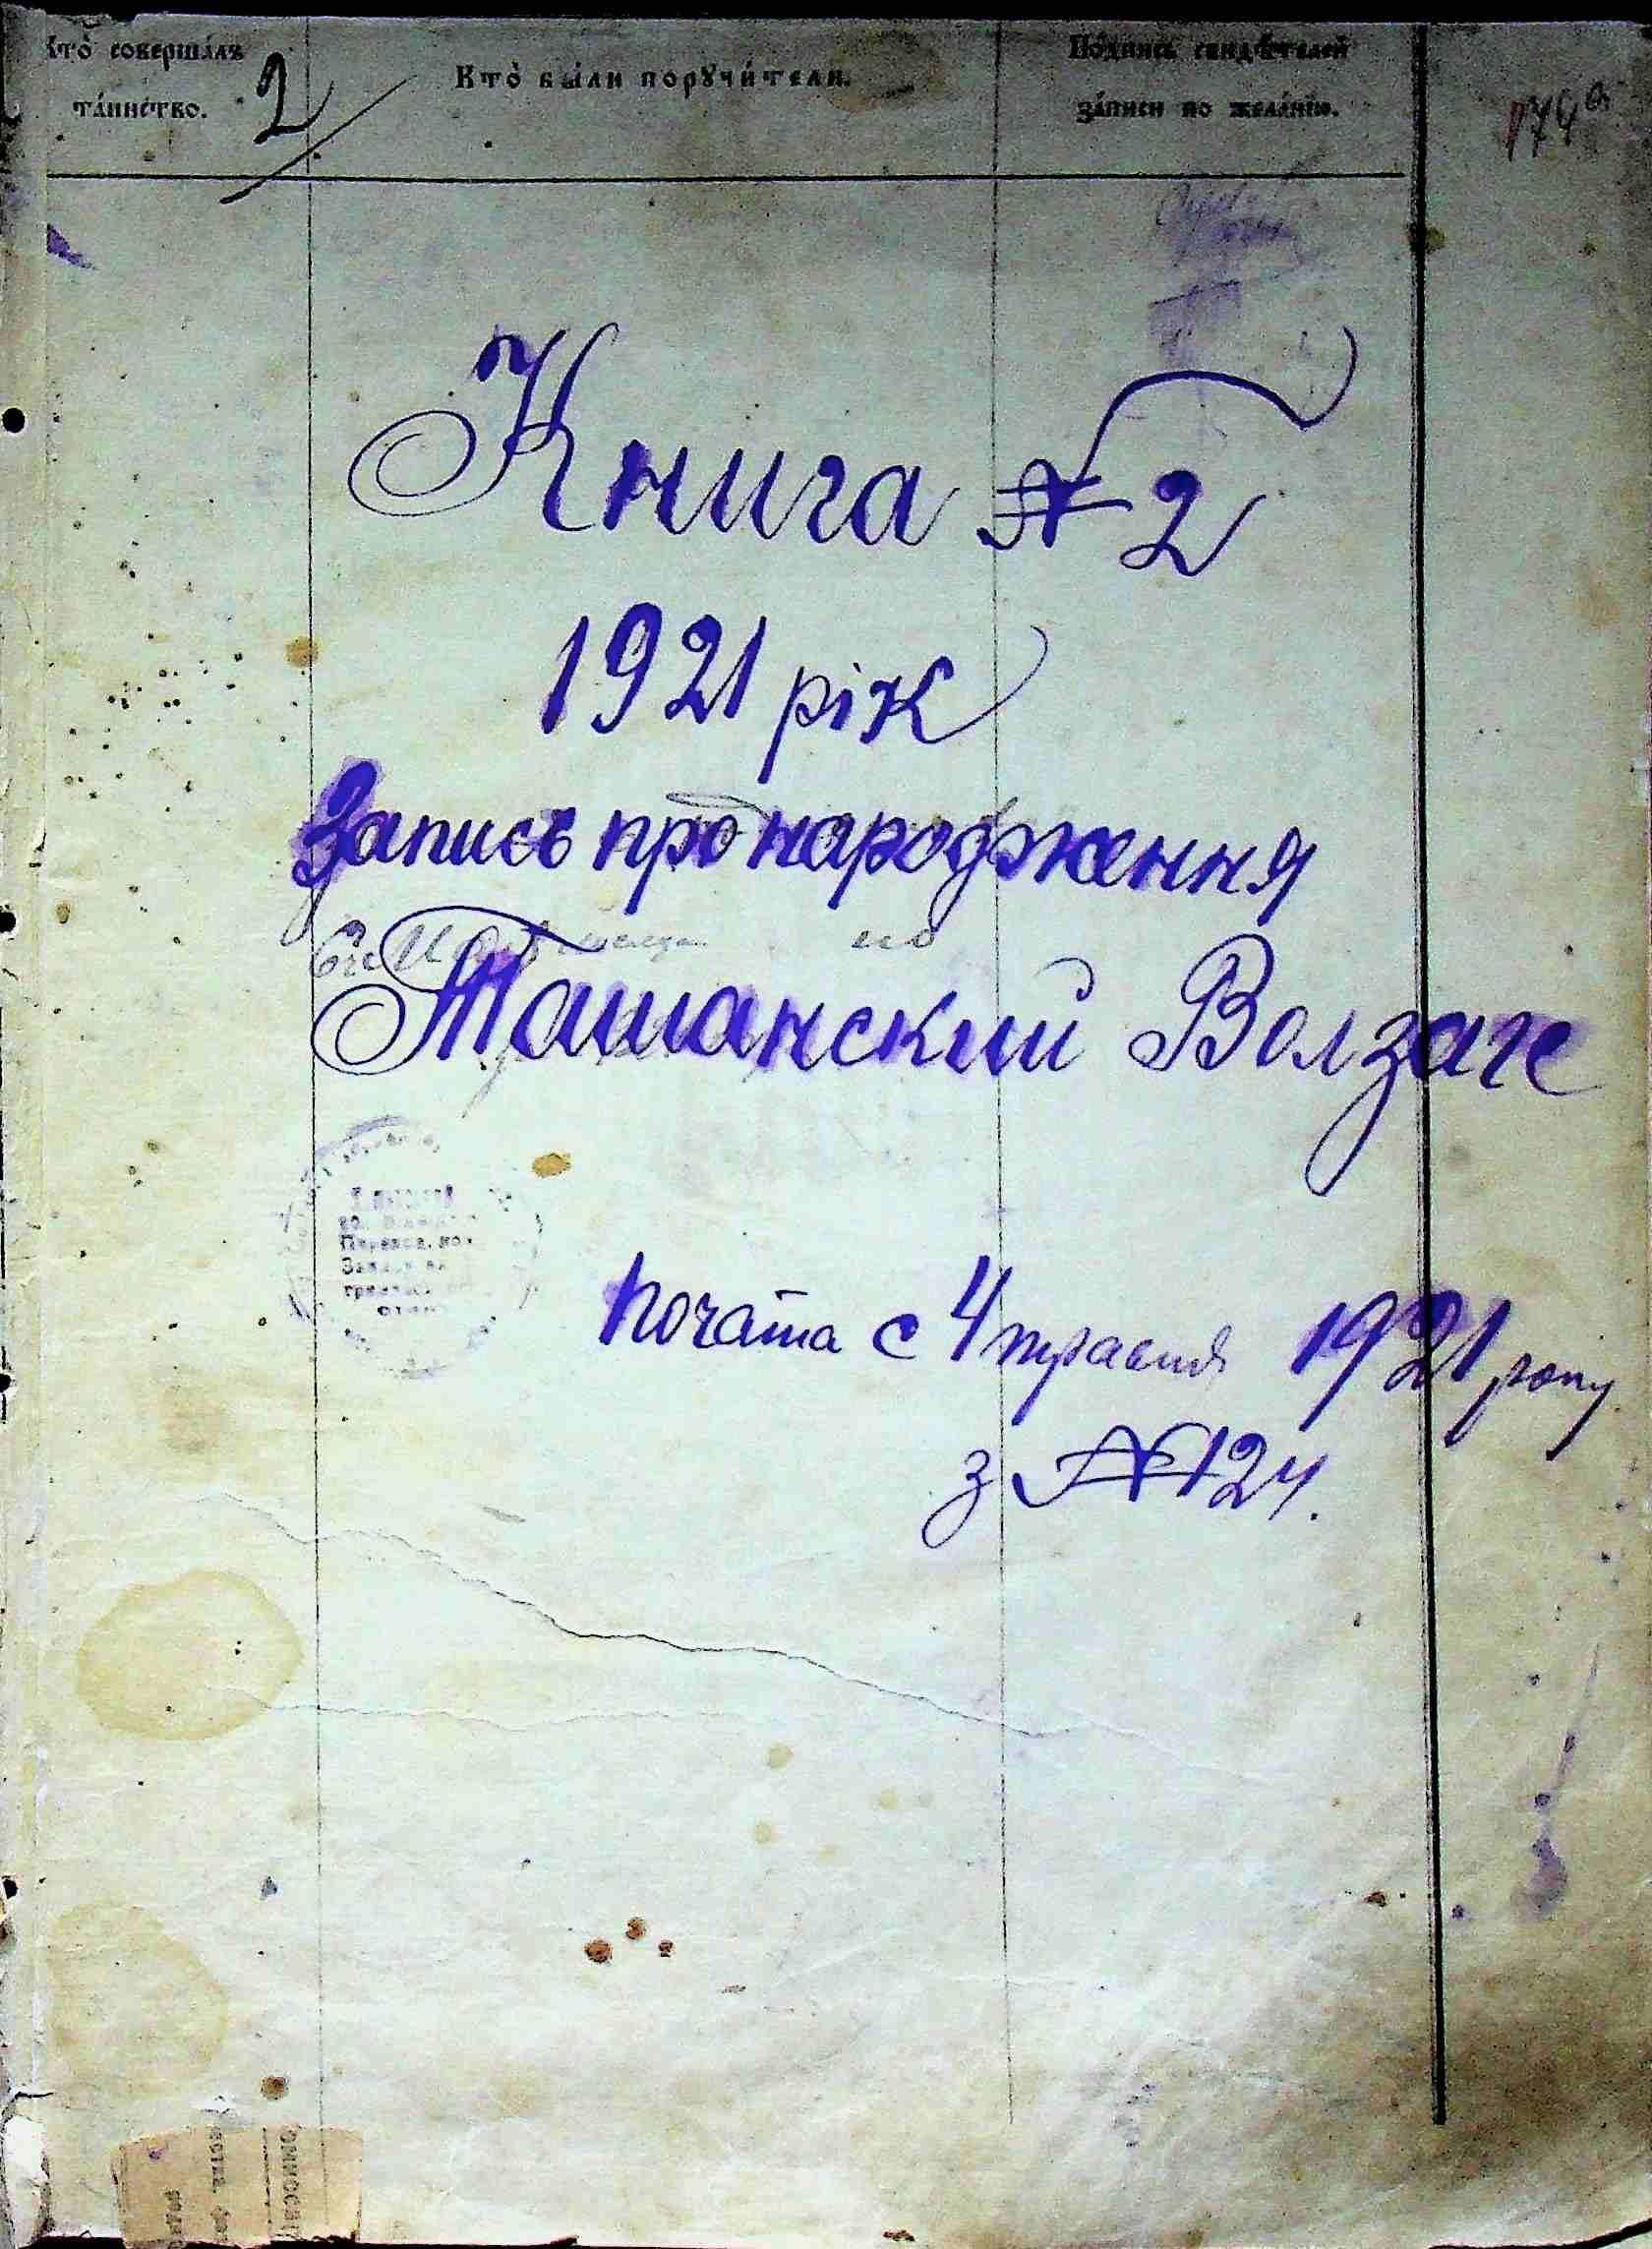 Кто̀ соверша́лъ
та́инство.
2
Кто̀ бы́ли порꙋчи́тели.
По́дпись свидѣ́телей
за́писи по жела́нїю.
174
Книга № 2
1921 рік
Запись про народження
Ташанский Волзагс
почата с 4 травня 1921 року
з № 124.